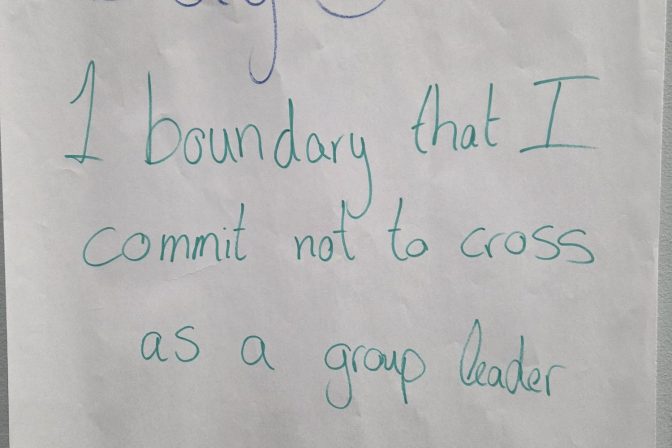 1 boundary that I
commit not to cross
as a group leader